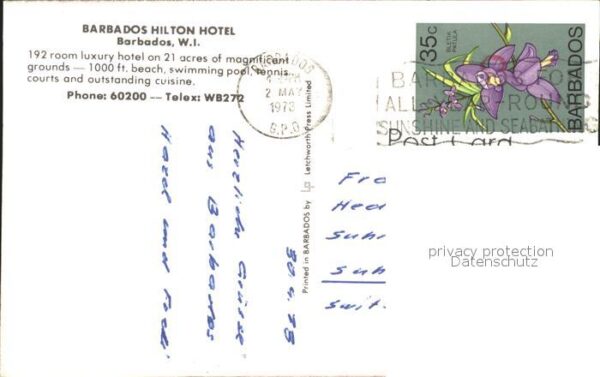 BARBADOS HILTON HOTEL
Barbados, W.I.
192 room luxury hotel on 21 acres of magnificent
grounds — 1000 ft. beach, swimming pool, tennis
courts and outstanding cuisine.
Phone: 60200 — Telex: WB272
BARBADOS
2 MAY
1978
G.P.O.
35c
BLETIA
PATULA
BARBADOS
SUNSHINE AND SEABATHING
Post Card
30.4.78
Herzliche Grüsse
aus Barbados
Hazel und Fredi
Printed in BARBADOS by Letchworth Press Limited
Fra
Hea
Suhr
Suh
Swit
privacy protection
Datenschutz